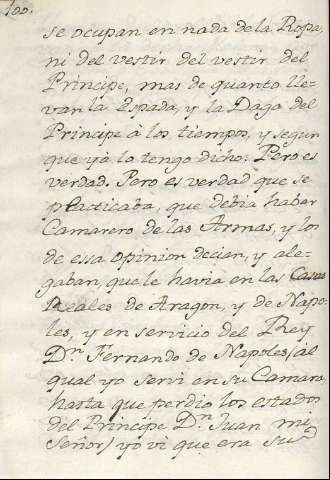 100.
se ocupan en nada de la Ropa,
ni del vestir del vestir del
Principe, mas de quanto lle-
van la Espada, y la Daga del
Principe á los tiempos, y segun
que yá lo tengo dicho: Pero es
verdad. Pero es verdad que se
practicaba, que debia haber
Camarero de las Armas, y los
de essa opinion decian, y ale-
gaban, que le havia en las Casas
Reales de Aragon, y de Napo-
les, y en servicio del Rey
Dn. Fernando de Napoles (al
qual yo servi en su Camara,
hasta que perdio los estados
del Principe Dn. Juan mi
Señor) yo vi que era su